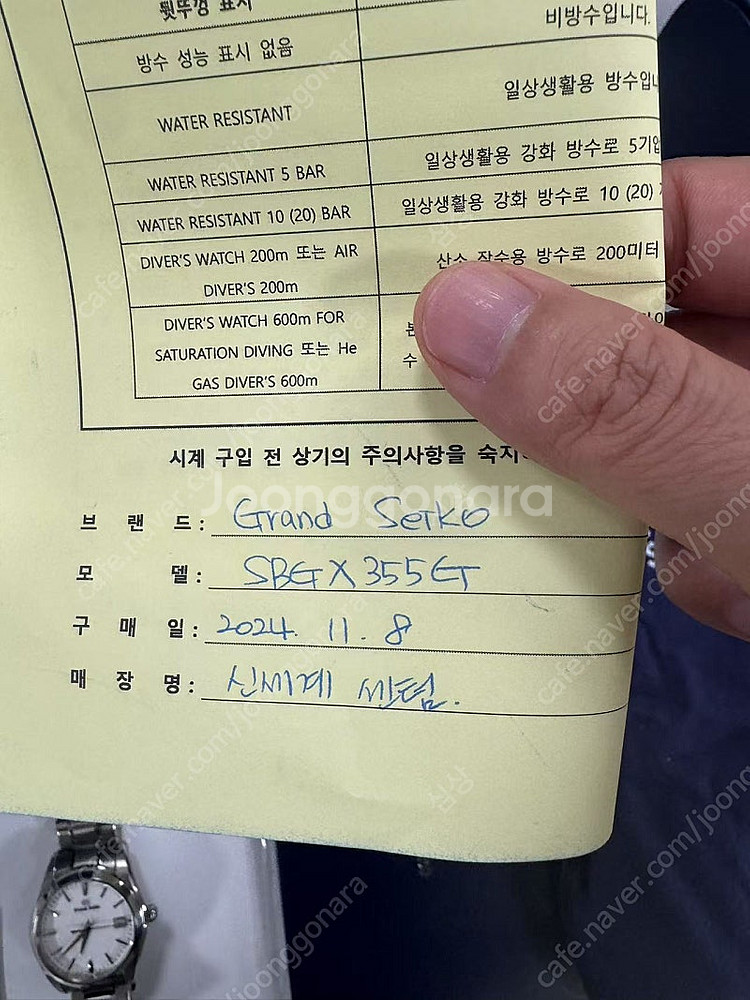 뒷뚜껑 표시
비방수입니다.
방수 성능 표시 없음
일상생활용 방수입니
WATER RESISTANT
일상생활용 강화 방수로 5기압
WATER RESISTANT 5 BAR
일상생활용 강화 방수로 10 (20)
WATER RESISTANT 10 (20) BAR
DIVER'S WATCH 200m 또는 AIR
DIVER'S 200m
산소 잠수용 방수로 200미터
DIVER'S WATCH 600m FOR
SATURATION DIVING 또는 He
GAS DIVER'S 600m
수
시계 구입 전 상기의 주의사항을 숙지
Joonggonara
브 랜 드: Grand Seiko
모 델: SBGX355G
구 매 일: 2024. 11. 8
매 장 명: 신세계 센텀.
cafe.naver.com/joonggonara